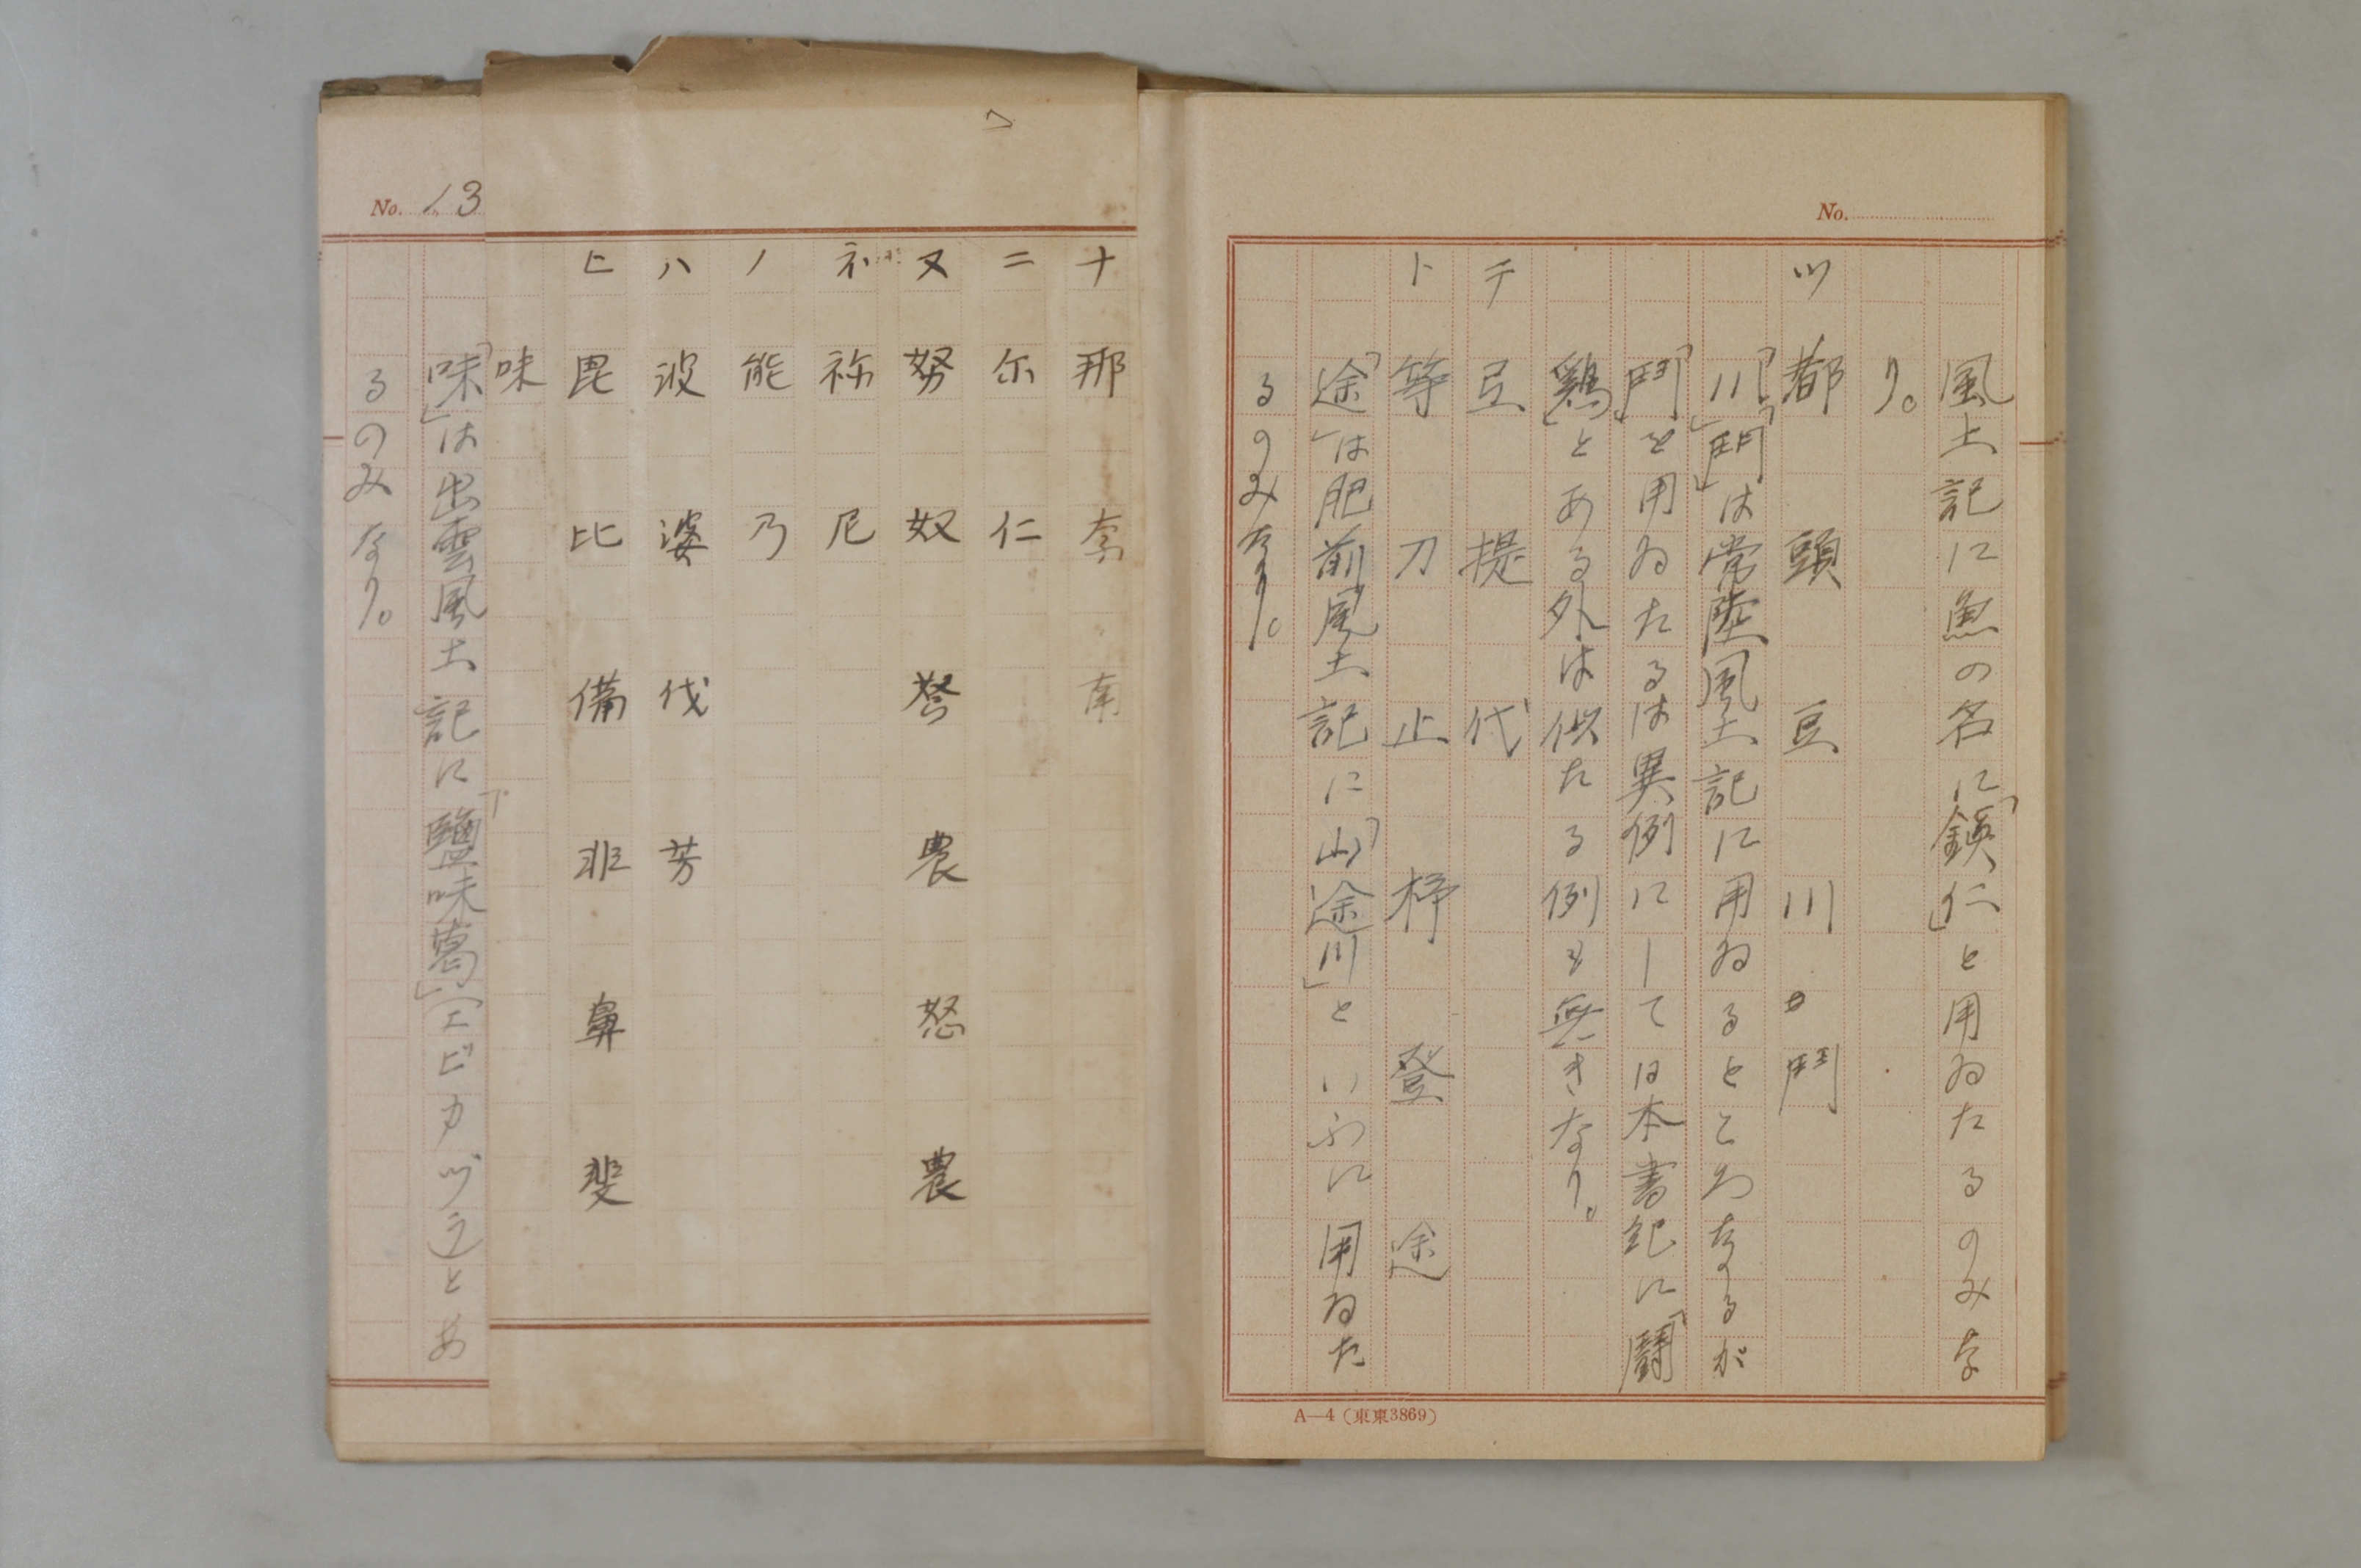 No.
風土記に魚の名に「鎮仁」と用ゐたるのみな
り。
ツ 都 頭 豆 川 鬥
「川」「鬥」は常陸風土記に用ゐるところなるが
「鬥」を用ゐたるは異例にしては本書紀に「鬪
鶏」とある外は供たる例も無きなり。
テ 豆 提 代
ト 等 刀 止 杼 登 途
「途」は肥前風土記に「山途川」といふに用ゐた
るのみなり。
A—4(東東3869)
No. 13
ナ 那 奈 南
ニ 尓 仁
ヌ 努 奴 怒 農 怒 農
ネ 祢 尼
ノ 能 乃
ハ 波 婆 伐 芳
ヒ 毘 比 備 非 鼻 斐
味
「味」は出雲風土記に「鹽味葛」(エビカヅラ)とあ
るのみなり。